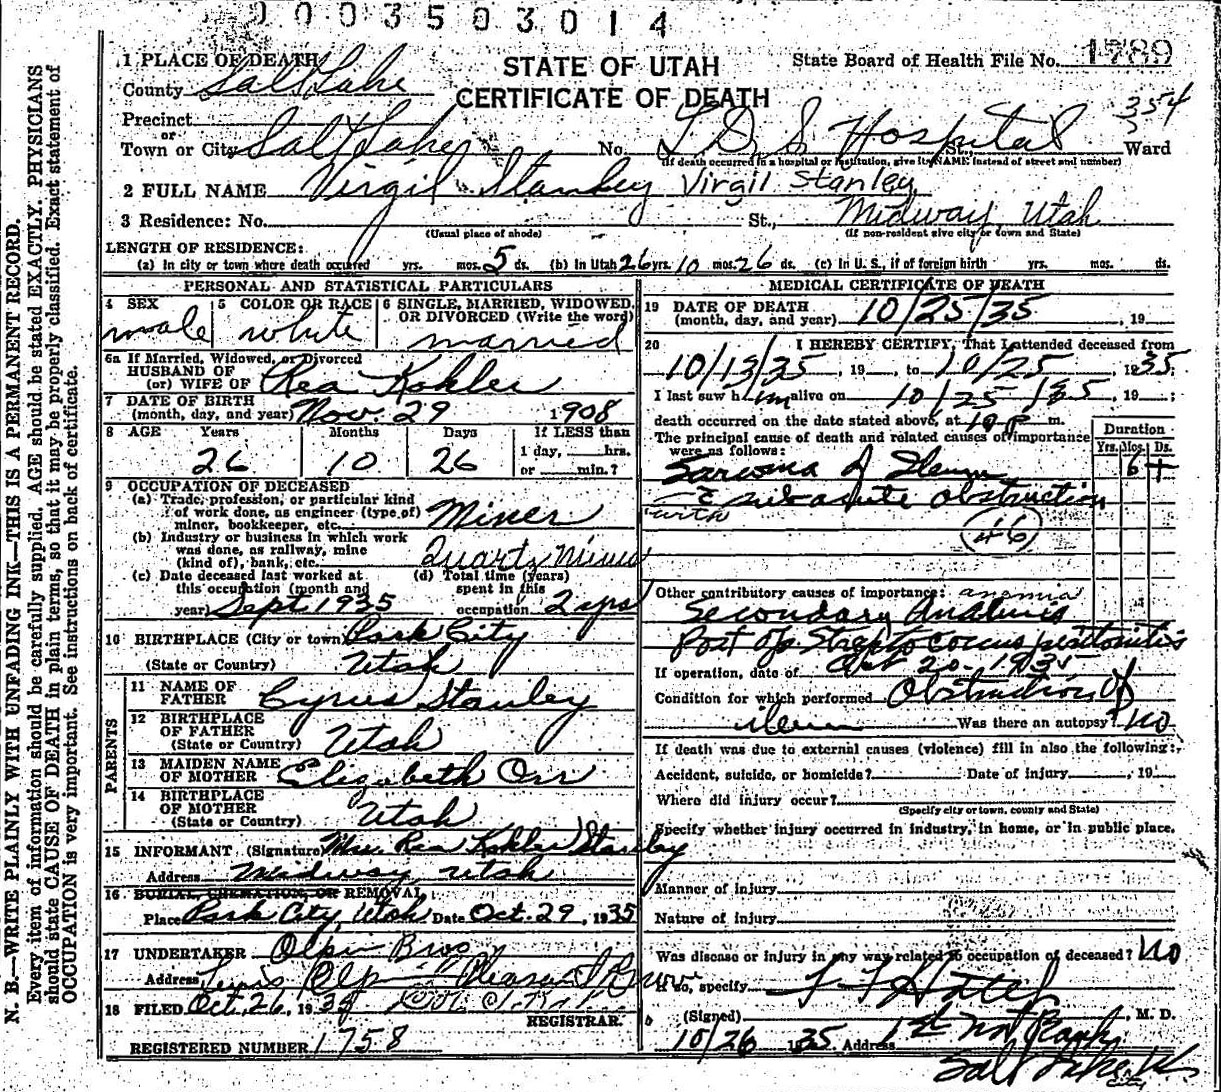 0003503014
1 PLACE OF DEATH
STATE OF UTAH
CERTIFICATE OF DEATH
State Board of Health File No. 1789
354
County Salt Lake
Precinct
or
Town or City Salt Lake No. L.D.S. Hospital St. Ward
(If death occurred in a hospital or institution, give its NAME instead of street and number)
2 FULL NAME Virgil Stanley Virgil Stanley
3 Residence: No. St., Midway Utah
(Usual place of abode) (If non-resident give city or town and State)
LENGTH OF RESIDENCE:
(a) In city or town where death occurred yrs. mos. 5 ds. (b) In Utah 26 yrs. 10 mos. 26 ds. (c) In U. S., if of foreign birth yrs. mos. ds.
PERSONAL AND STATISTICAL PARTICULARS
4 SEX
male
5 COLOR OR RACE
white
6 SINGLE, MARRIED, WIDOWED, OR DIVORCED (Write the word)
married
6a If Married, Widowed, or Divorced
HUSBAND OF
(or) WIFE OF Rea Kohler
7 DATE OF BIRTH
(month, day, and year) Nov. 29 1908
8 AGE Years Months Days If LESS than
26 10 26 1 day, hrs.
or min.?
9 OCCUPATION OF DECEASED
(a) Trade, profession, or particular kind
of work done, as engineer (type of)
miner, bookkeeper, etc. Miner
(b) Industry or business in which work
was done, as railway, mine
(kind of), bank, etc. Quartz
(c) Date deceased last worked at
this occupation (month and
year) Sept 1935
(d) Total time (years)
spent in this
occupation 2 yrs
10 BIRTHPLACE (City or town) Park City
(State or Country) Utah
PARENTS
11 NAME OF
FATHER Cyrus Stanley
12 BIRTHPLACE
OF FATHER
(State or Country) Utah
13 MAIDEN NAME
OF MOTHER Elizabeth Orr
14 BIRTHPLACE
OF MOTHER
(State or Country) Utah
15 INFORMANT (Signature) Mrs. Rea Kohler Stanley
Address Midway, Utah
16 BURIAL, CREMATION, OR REMOVAL
Place Park City, Utah Date Oct. 29, 1935
17 UNDERTAKER Olpin Bros
Address Pleasant Grove
18 FILED Oct. 26, 193
REGISTRAR.
REGISTERED NUMBER 1758
MEDICAL CERTIFICATE OF DEATH
19 DATE OF DEATH
(month, day, and year) 10/25/35, 19
20 I HEREBY CERTIFY, That I attended deceased from
10/13/35, 19, to 10/25, 1935
I last saw him alive on 10/25/35, 19;
death occurred on the date stated above, at 10 p m.
The principal cause of death and related causes of importance
were as follows:
Duration
Yrs. Mos. Ds.
Sarcoma of Ileum 6+
c̄ subacute obstruction
with
(46)
Other contributory causes of importance: anemia
Secondary
Post Op Streptococcus peritonitis
If operation, date of Oct 20 - 1935
Condition for which performed Obstruction of
ileum Was there an autopsy? No
If death was due to external causes (violence) fill in also the following:
Accident, suicide, or homicide? Date of injury, 19
Where did injury occur?
(Specify city or town, county and State)
Specify whether injury occurred in industry, in home, or in public place.
Manner of injury
Nature of injury
Was disease or injury in any way related to occupation of deceased? No
If so, specify
(Signed) , M. D.
10/26 1935 Address 1st Nat Bank
Salt Lake
N. B.—WRITE PLAINLY WITH UNFADING INK—THIS IS A PERMANENT RECORD.
Every item of information should be carefully supplied. AGE should be stated EXACTLY. PHYSICIANS
should state CAUSE OF DEATH in plain terms, so that it may be properly classified. Exact statement of
OCCUPATION is very important. See instructions on back of certificate.